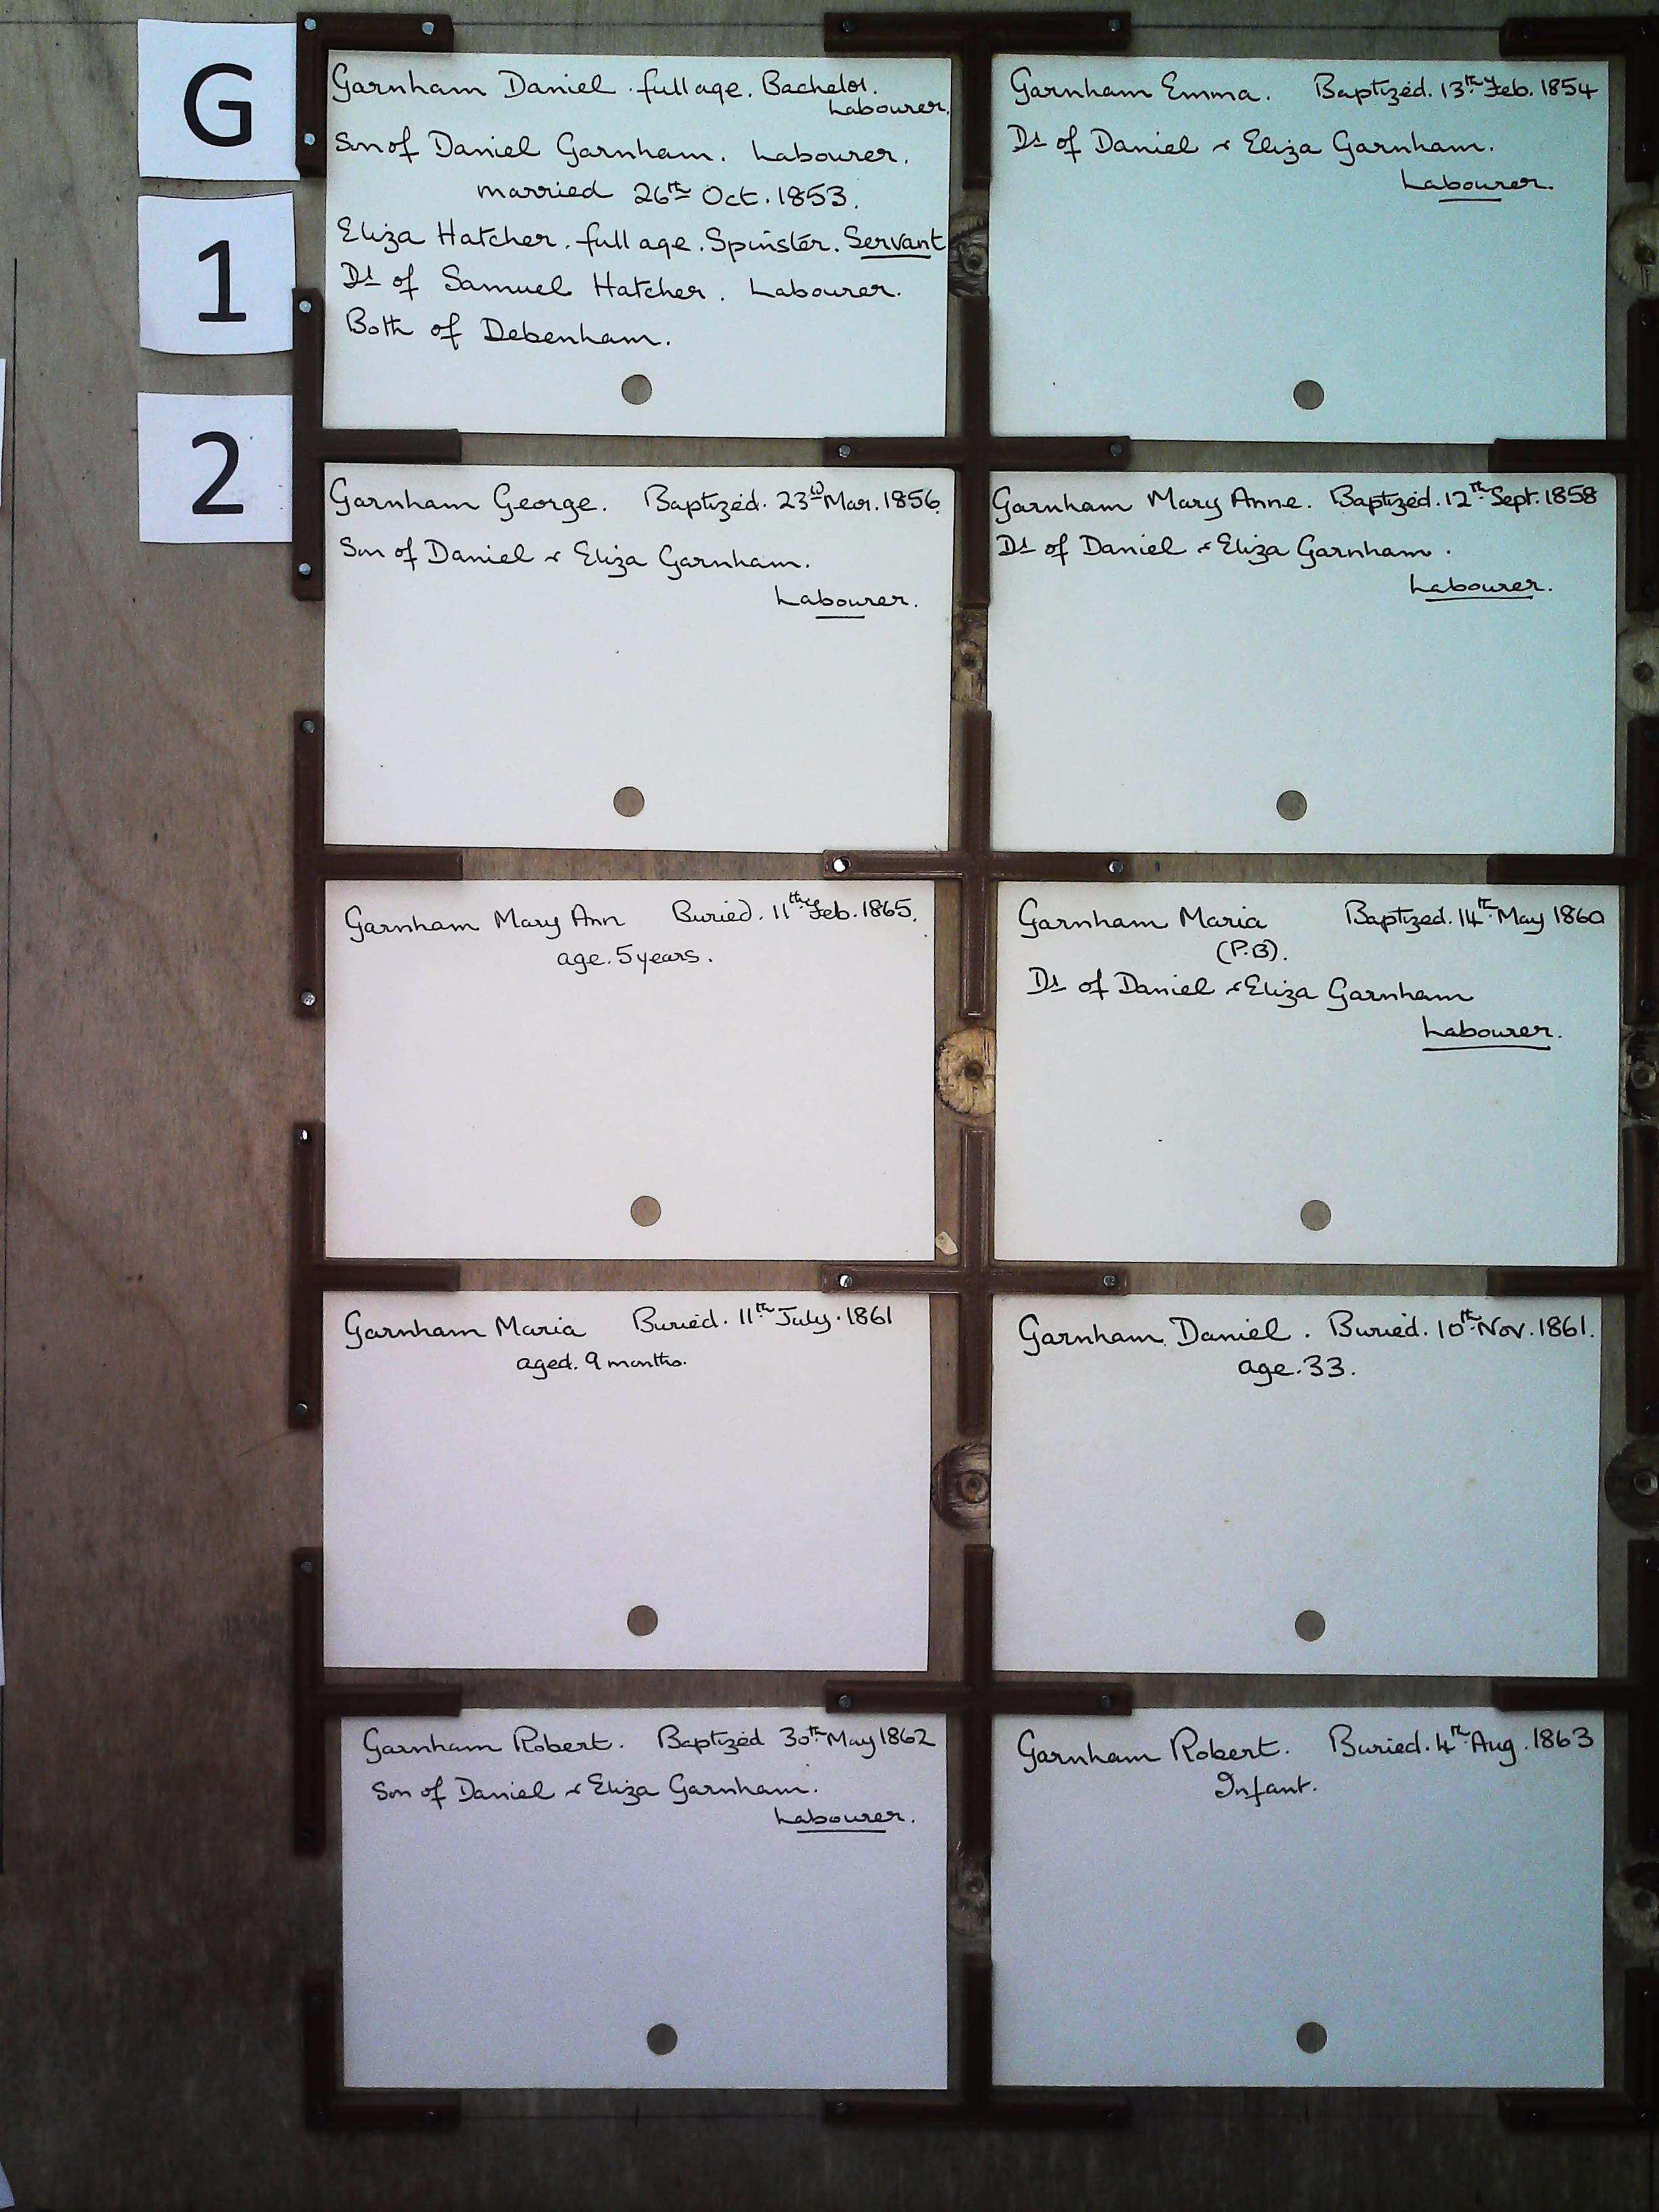 G
1
2
Garnham Daniel. full age. Bachelor.
Labourer.
Son of Daniel Garnham. Labourer.
married 26th Oct. 1853.
Eliza Hatcher. full age. Spinster. Servant
Dr of Samuel Hatcher. Labourer.
Both of Debenham.
Garnham Emma. Baptized. 13th Feb. 1854
Dr of Daniel & Eliza Garnham.
Labourer.
Garnham George. Baptized. 23rd Mar. 1856.
Son of Daniel & Eliza Garnham.
Labourer.
Garnham Mary Anne. Baptized. 12th Sept. 1858
Dr of Daniel & Eliza Garnham.
Labourer.
Garnham Mary Ann Buried. 11th Feb. 1865.
age. 5 years.
Garnham Maria Baptized. 14th May 1860
(P.B).
Dr of Daniel & Eliza Garnham
Labourer.
Garnham Maria Buried. 11th July. 1861
aged. 9 months.
Garnham Daniel. Buried. 10th Nov. 1861.
age. 33.
Garnham Robert. Baptized 30th May 1862
Son of Daniel & Eliza Garnham.
Labourer.
Garnham Robert. Buried. 4th Aug. 1863
Infant.